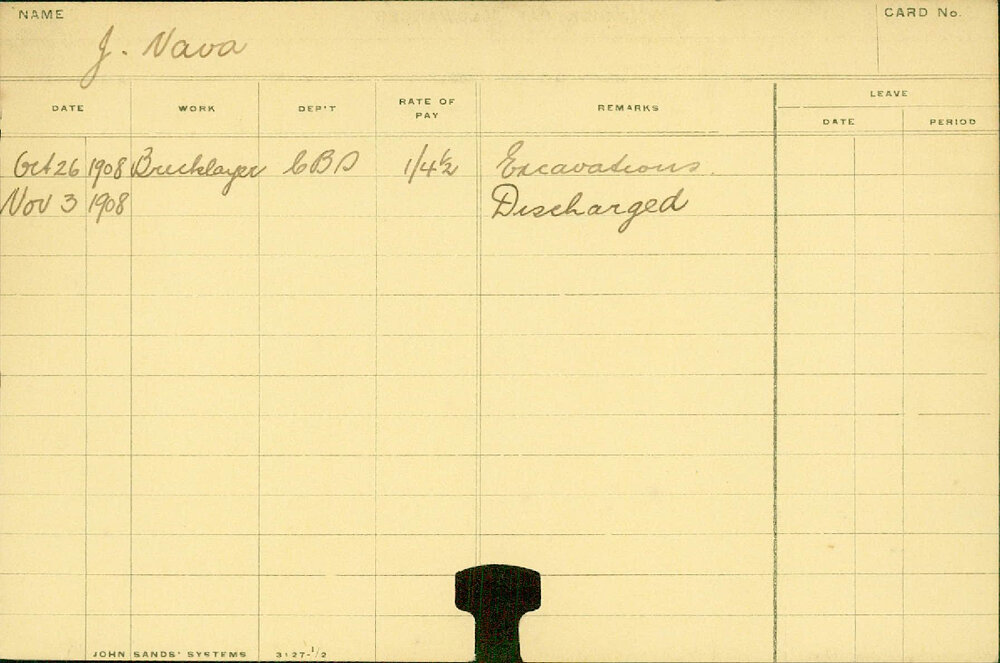 NAME
CARD No.
J. Nava
DATE WORK DEP'T RATE OF PAY REMARKS LEAVE
DATE PERIOD
Oct 26 1908 Bricklayer CBD 1/4½ Excavations.
Nov 3 1908 Discharged
JOHN SANDS' SYSTEMS 3127-1/2